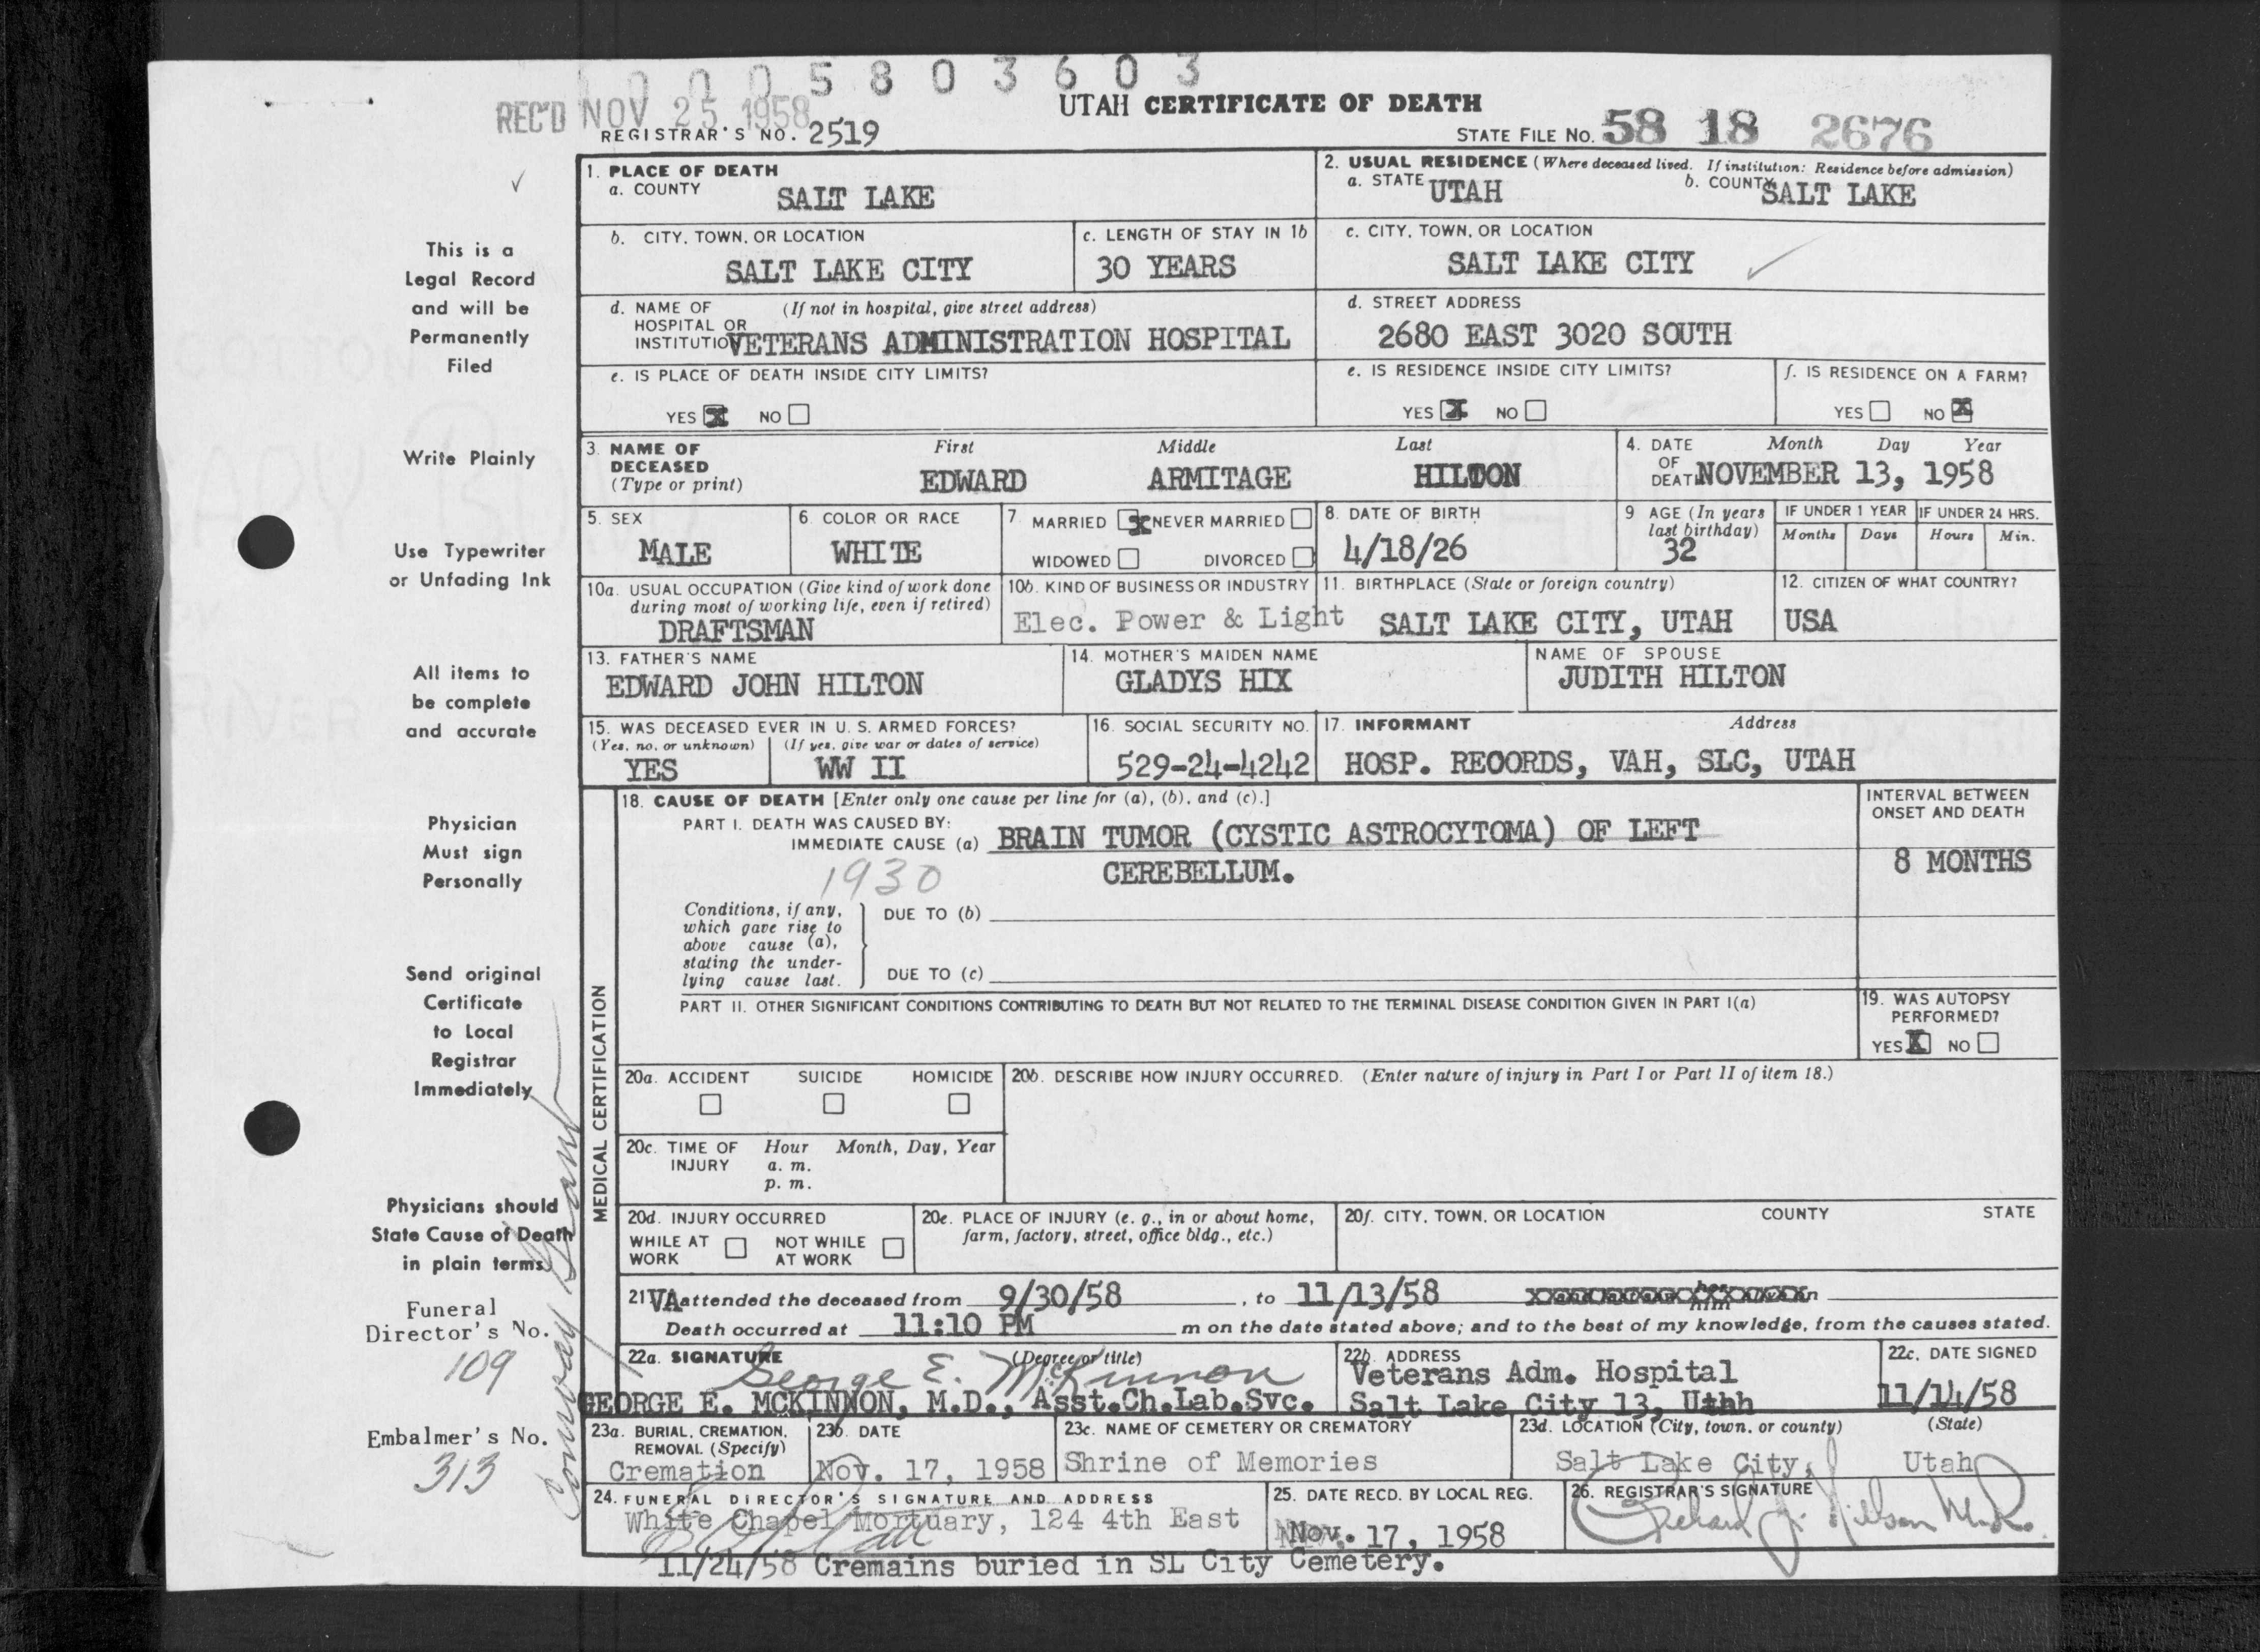 0005803603
REC'D NOV 25 1958
UTAH CERTIFICATE OF DEATH
REGISTRAR'S NO. 2519
STATE FILE No. 58 18 2676
This is a
Legal Record
and will be
Permanently
Filed
Write Plainly
Use Typewriter
or Unfading Ink
All items to
be complete
and accurate
Physician
Must sign
Personally
Send original
Certificate
to Local
Registrar
Immediately
Physicians should
State Cause of Death
in plain terms
Funeral
Director's No.
109
Embalmer's No.
313
1. PLACE OF DEATH
a. COUNTY SALT LAKE
2. USUAL RESIDENCE (Where deceased lived. If institution: Residence before admission)
a. STATE UTAH b. COUNTY SALT LAKE
b. CITY, TOWN, OR LOCATION
SALT LAKE CITY
c. LENGTH OF STAY IN 1b
30 YEARS
c. CITY, TOWN, OR LOCATION
SALT LAKE CITY
d. NAME OF (If not in hospital, give street address)
HOSPITAL OR
INSTITUTION VETERANS ADMINISTRATION HOSPITAL
d. STREET ADDRESS
2680 EAST 3020 SOUTH
e. IS PLACE OF DEATH INSIDE CITY LIMITS?
YES X NO
e. IS RESIDENCE INSIDE CITY LIMITS?
YES X NO
f. IS RESIDENCE ON A FARM?
YES NO X
3. NAME OF
DECEASED
(Type or print)
First Middle Last
EDWARD ARMITAGE HILTON
4. DATE Month Day Year
OF
DEATH NOVEMBER 13, 1958
5. SEX
MALE
6. COLOR OR RACE
WHITE
7. MARRIED X NEVER MARRIED
WIDOWED DIVORCED
8. DATE OF BIRTH
4/18/26
9 AGE (In years
last birthday)
32
IF UNDER 1 YEAR IF UNDER 24 HRS.
Months Days Hours Min.
10a. USUAL OCCUPATION (Give kind of work done
during most of working life, even if retired)
DRAFTSMAN
10b. KIND OF BUSINESS OR INDUSTRY
Elec. Power & Light
11. BIRTHPLACE (State or foreign country)
SALT LAKE CITY, UTAH
12. CITIZEN OF WHAT COUNTRY?
USA
13. FATHER'S NAME
EDWARD JOHN HILTON
14. MOTHER'S MAIDEN NAME
GLADYS HIX
NAME OF SPOUSE
JUDITH HILTON
15. WAS DECEASED EVER IN U. S. ARMED FORCES?
(Yes, no, or unknown) (If yes, give war or dates of service)
YES WW II
16. SOCIAL SECURITY NO.
529-24-4242
17. INFORMANT Address
HOSP. RECORDS, VAH, SLC, UTAH
MEDICAL CERTIFICATION
18. CAUSE OF DEATH [Enter only one cause per line for (a), (b), and (c).]
PART I. DEATH WAS CAUSED BY:
IMMEDIATE CAUSE (a) BRAIN TUMOR (CYSTIC ASTROCYTOMA) OF LEFT
CEREBELLUM.
1930
INTERVAL BETWEEN
ONSET AND DEATH
8 MONTHS
Conditions, if any,
which gave rise to
above cause (a),
stating the under-
lying cause last.
DUE TO (b)
DUE TO (c)
PART II. OTHER SIGNIFICANT CONDITIONS CONTRIBUTING TO DEATH BUT NOT RELATED TO THE TERMINAL DISEASE CONDITION GIVEN IN PART I(a)
19. WAS AUTOPSY
PERFORMED?
YES X NO
20a. ACCIDENT SUICIDE HOMICIDE
20b. DESCRIBE HOW INJURY OCCURRED. (Enter nature of injury in Part I or Part II of item 18.)
20c. TIME OF Hour Month, Day, Year
INJURY a. m.
p. m.
20d. INJURY OCCURRED
WHILE AT NOT WHILE
WORK AT WORK
20e. PLACE OF INJURY (e. g., in or about home,
farm, factory, street, office bldg., etc.)
20f. CITY, TOWN, OR LOCATION COUNTY STATE
21 VA attended the deceased from 9/30/58, to 11/13/58
Death occurred at 11:10 PM m on the date stated above; and to the best of my knowledge, from the causes stated.
22a. SIGNATURE (Degree or title)
George E. McKinnon
GEORGE E. MCKINNON, M.D., Asst.Ch.Lab.Svc.
22b. ADDRESS
Veterans Adm. Hospital
Salt Lake City 13, Uthh
22c. DATE SIGNED
11/14/58
23a. BURIAL, CREMATION,
REMOVAL (Specify)
Cremation
23b. DATE
Nov. 17, 1958
23c. NAME OF CEMETERY OR CREMATORY
Shrine of Memories
23d. LOCATION (City, town, or county) (State)
Salt Lake City, Utah
24. FUNERAL DIRECTOR'S SIGNATURE AND ADDRESS
White Chapel Mortuary, 124 4th East
25. DATE RECD. BY LOCAL REG.
Nov. 17, 1958
26. REGISTRAR'S SIGNATURE
11/24/58 Cremains buried in SL City Cemetery.